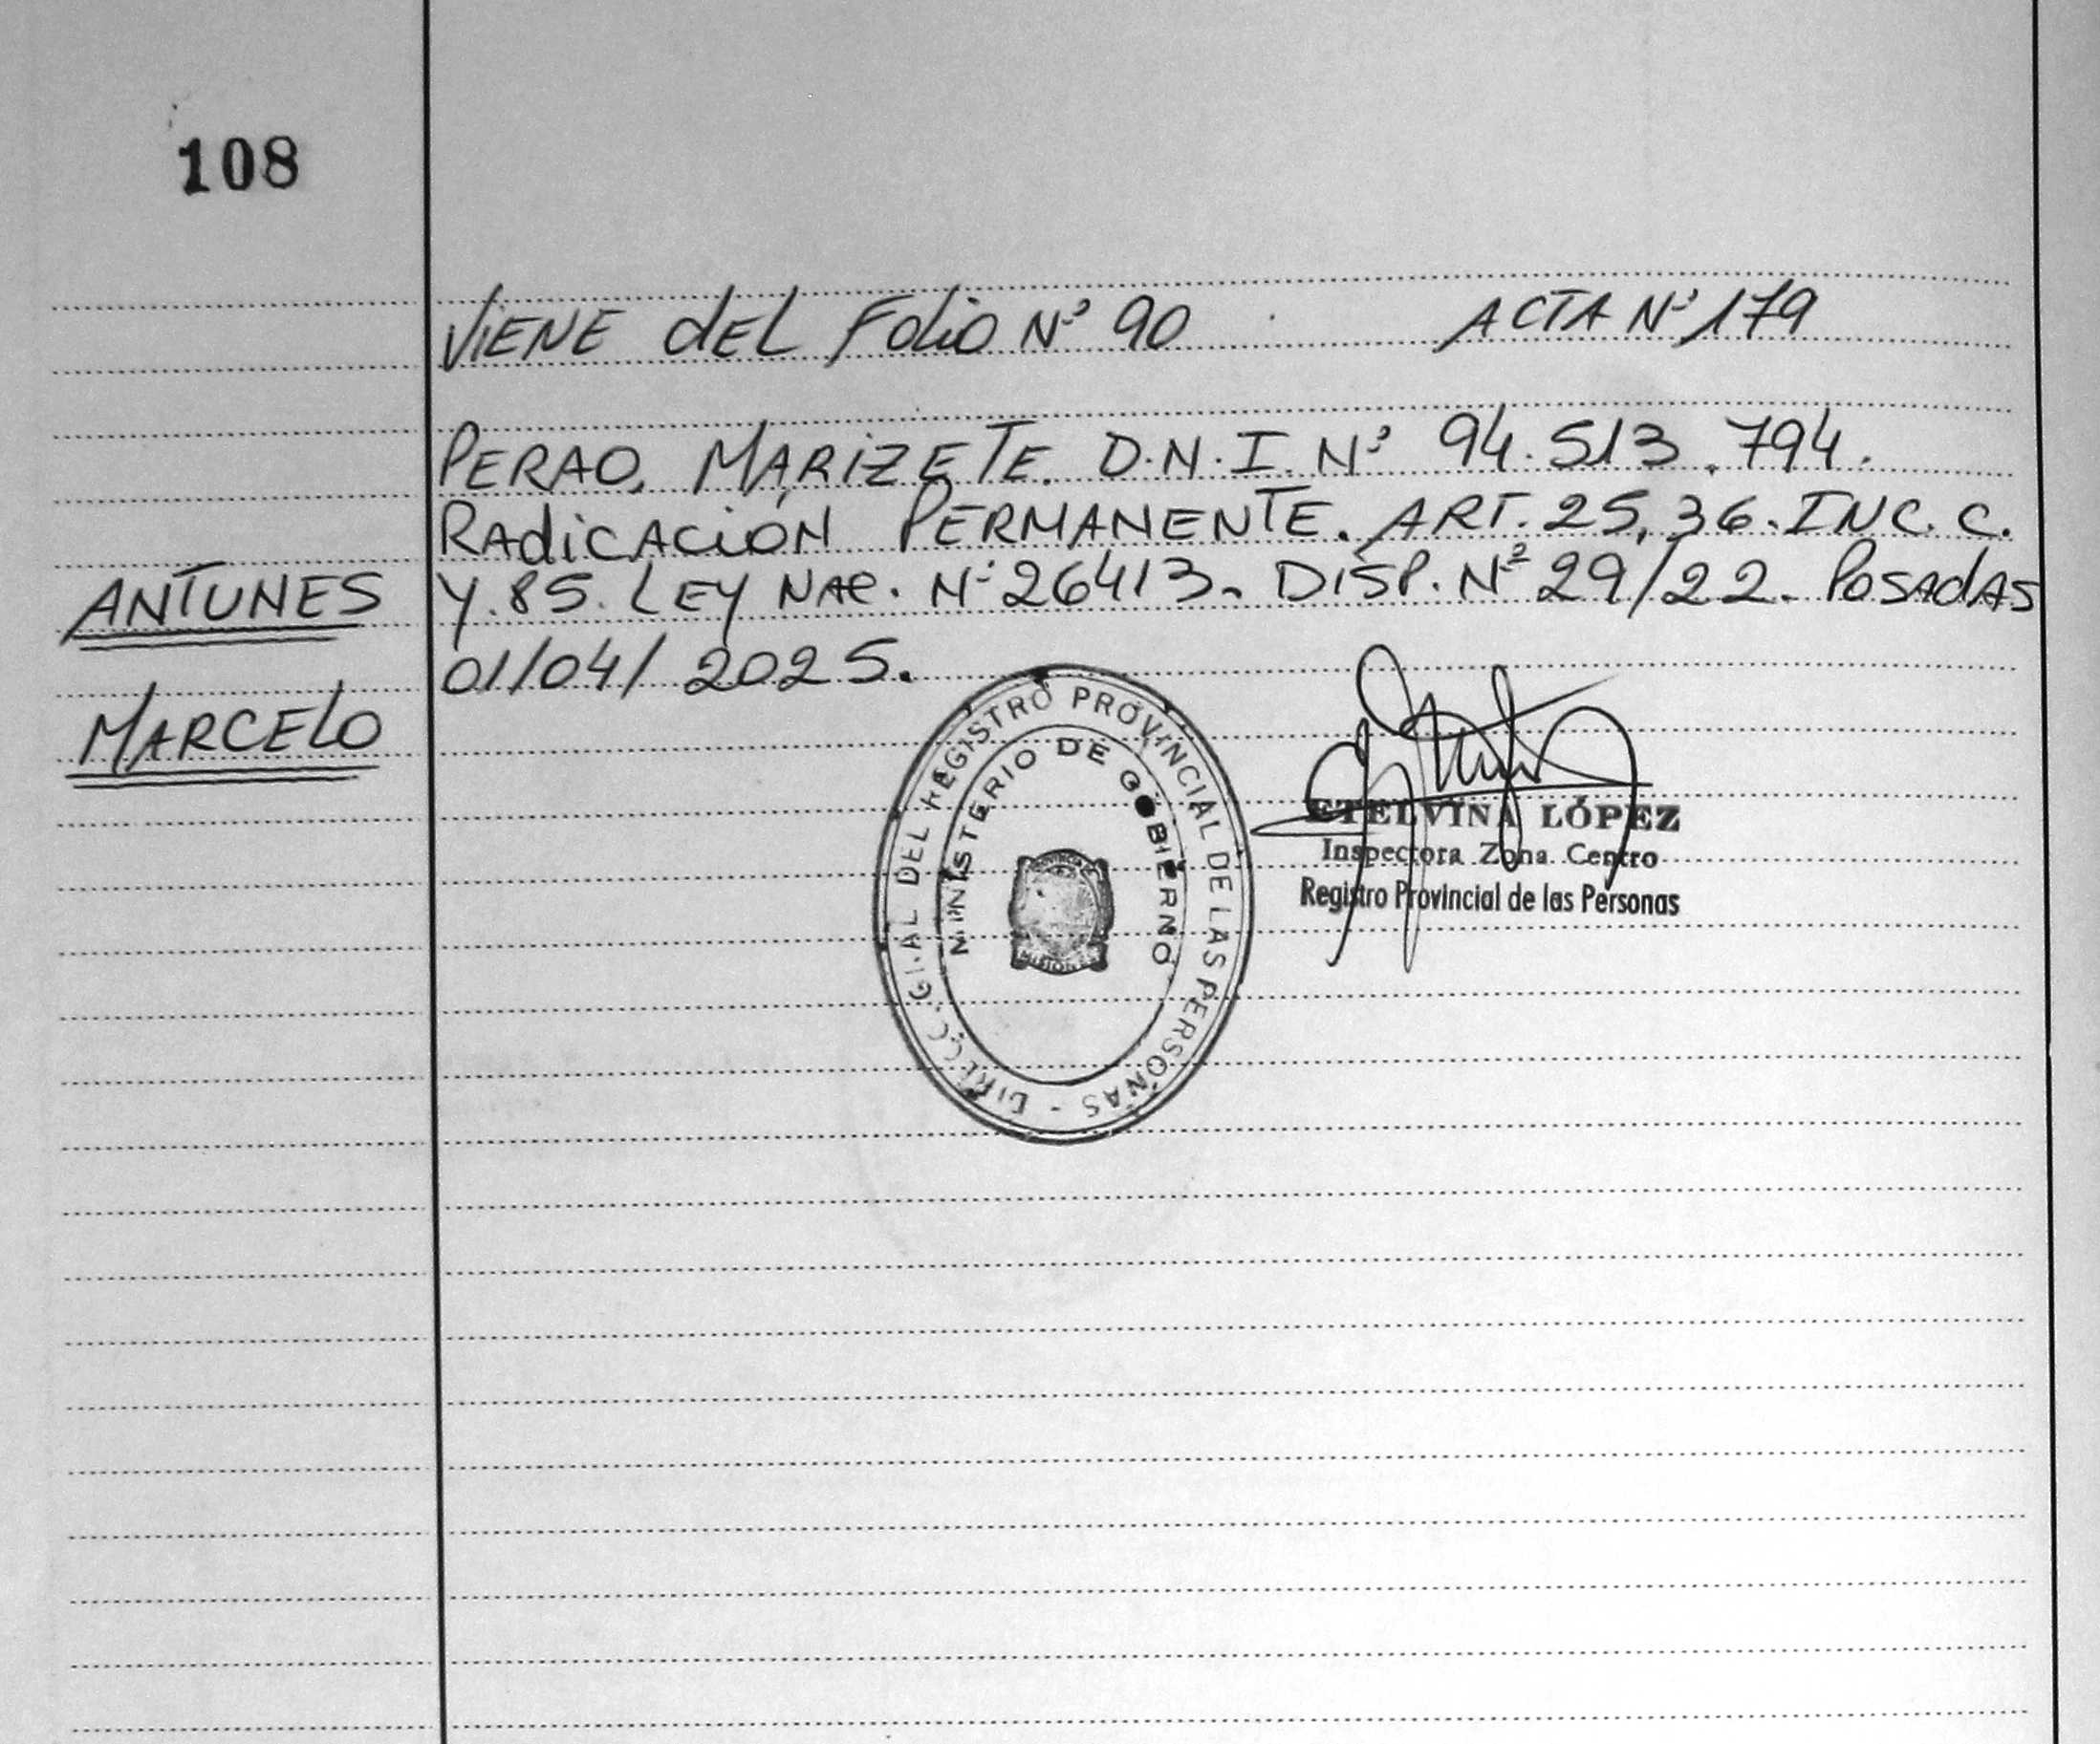 108
VIENE dEL Folio Nº 90 ACTA Nº 179
PERAO, MARIZETE. D.N.I. Nº 94.513.794.
RAdiCACIÓN PERMANENTE. ART. 25, 36. INC. C.
ANTUNES Y.85. LEY NAC. Nº 26413. DISP. Nº 29/22. POSAdAS
01/04/2025.
MARCELO
DIRECC. GRAL DEL REGISTRO PROVINCIAL DE LAS PERSONAS -
MINISTERIO DE GOBIERNO
PROVINCIA
MISIONES
ETELVINA LÓPEZ
Inspectora Zona Centro
Registro Provincial de las Personas